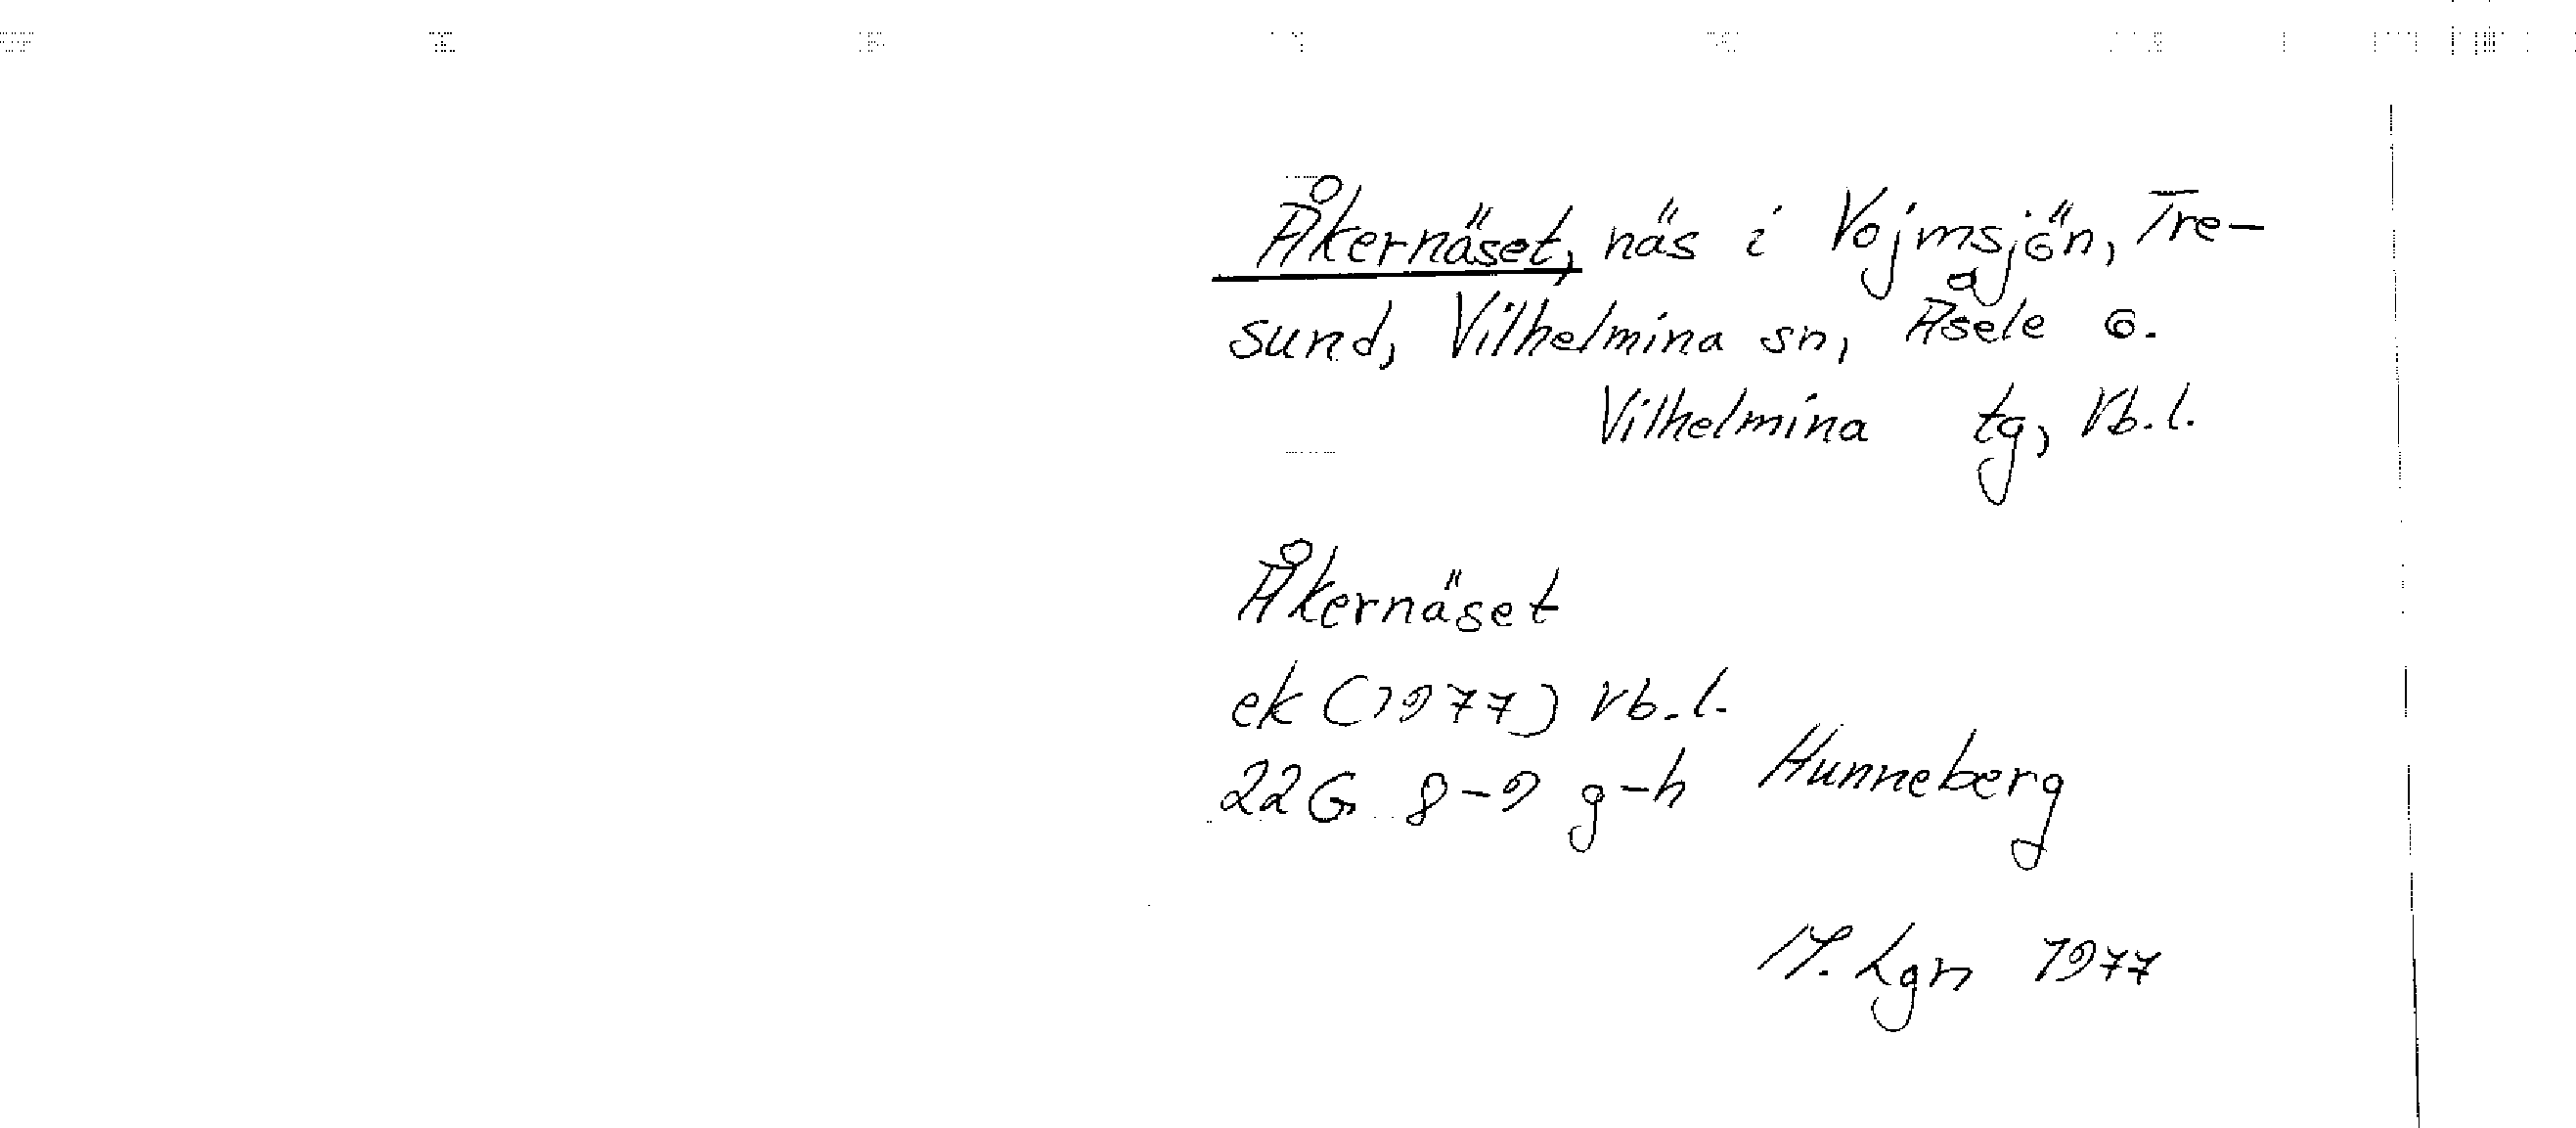 Åkernäset, näs i Vojmsjön, Tre-
sund, Vilhelmina sn, Åsele o.
Vilhelmina tg, Vb.l.
Åkernäset
ek (1977) Vb.l.
22 G 8-9 g-h Hunneberg
M. Lgn 1977